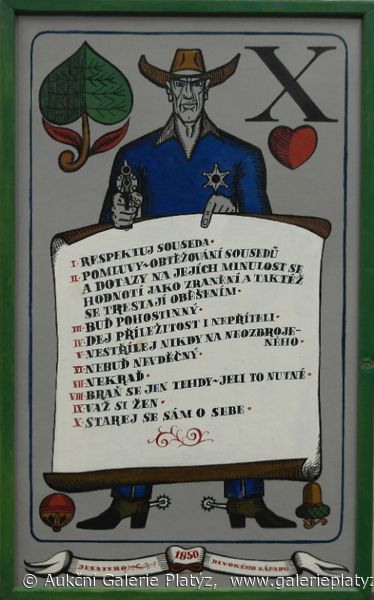 X
I. RESPEKTUJ SOUSEDA.
II. POMLUVY~OBTĚŽOVÁNÍ SOUSEDŮ
A DOTAZY NA JEJÍCH MINULOST SE
HODNOTÍ JAKO ZRANĚNÍ A TAKTÉŽ
SE TRESTAJÍ OBĚŠENÍM.
III. BUĎ POHOSTINNÝ.
IV. DEJ PŘÍLEŽITOST I NEPŘÍTELI.
V. NESTŘÍLEJ NIKDY NA NEOZBROJE-
NÉHO.
VI. NEBUĎ NEVDĚČNÝ.
VII. NEKRAĎ.
VIII. BRAŇ SE JEN TEHDY~JELI TO NUTNÉ.
IX. VAŽ SI ŽEN.
X. STAREJ SE SÁM O SEBE.
DESATERO 1850 DIVOKÉHO ZÁPADU
© Aukcni Galerie Platyz, www.galerieplatyz